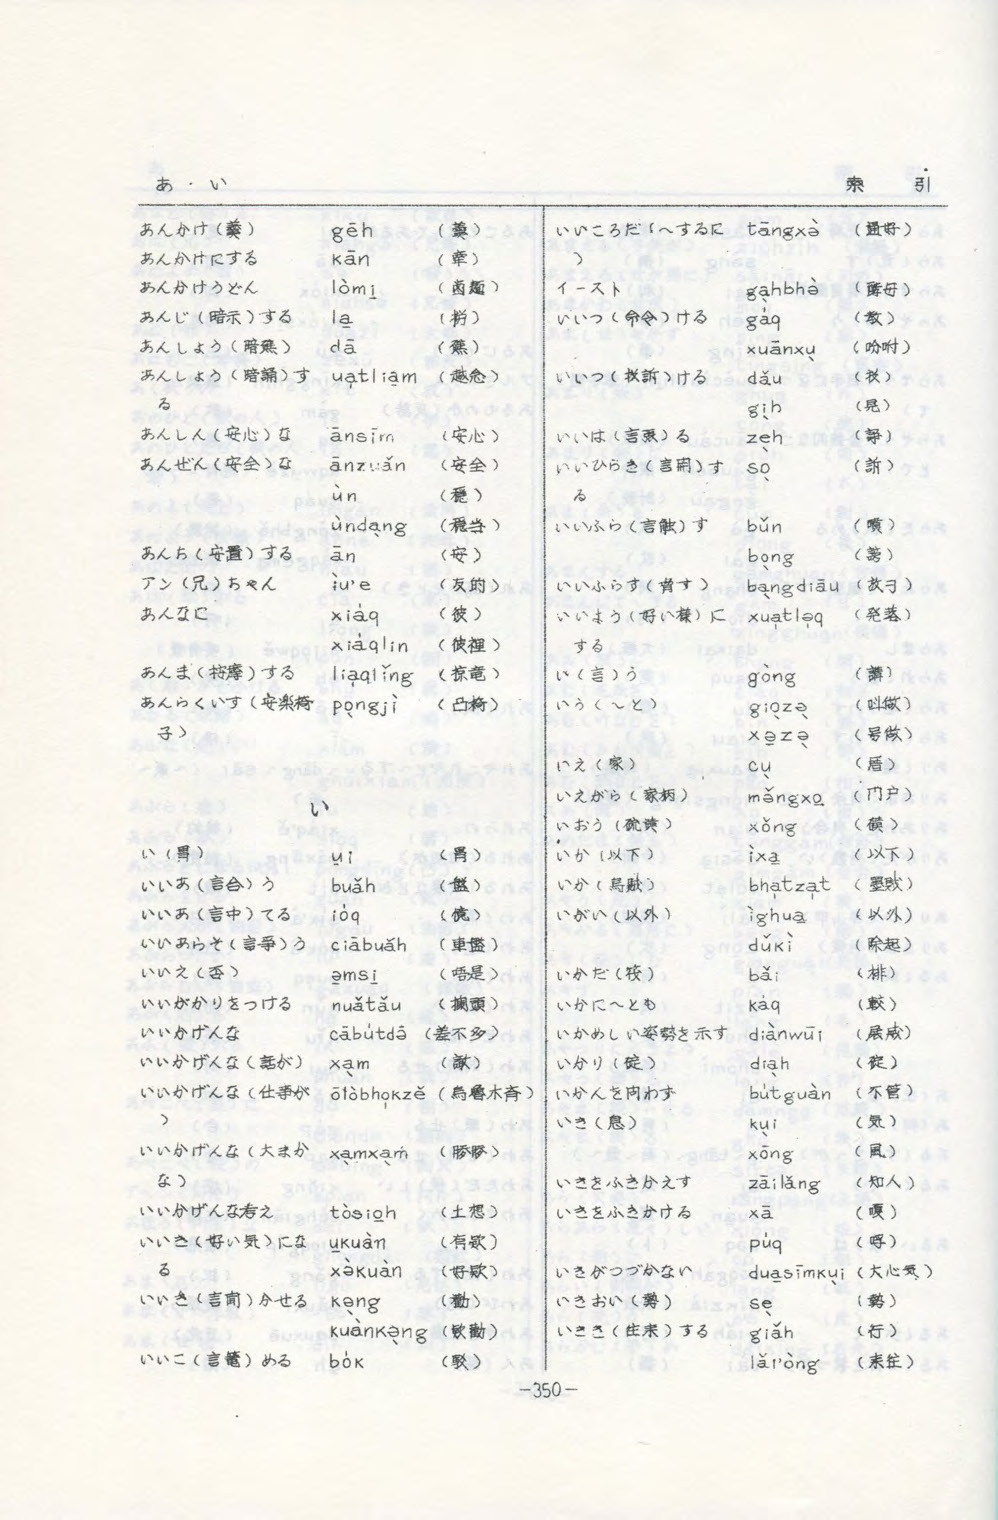 あ・い
索引
あんかけ(羹) gēh (羹)
あんかけにする kān (牽)
あんかけうどん lòmi̲ (卤麺)
あんじ(暗示)する la̲
あんしょう(暗礁) dā (礁)
あんしょう(暗誦)す uạtliạm (越念)
る
あんしん(安心)な ānsīm (安心)
あんぜん(安全)な ānzuǎn (安全)
ùn (穏)
ùndạng (穏当)
あんち(安置)する ān (安)
アン(兄)ちゃん ìu'e (友的)
あんなに xiáq (彼)
xiáqlin (彼裡)
あんま(按摩)する liạqlǐng (掠竜)
あんらくいす(安楽椅 pọngjì (凸椅)
子)
い
い(胃) u̲i (胃)
いいあ(言合)う buǎh (盤)
いいあ(言中)てる ióq
いいあらそ(言争)う ciābuǎh (車盤)
いいえ(否) ə̲msi̲ (唔是)
いいがかりをつける nuǎtǎu
いいかげんな cābútdə̄ (差不多)
いいかげんな(話が) xạm
いいかげんな(仕事が ōlòbhọkzě (烏魯木斉)
)
いいかげんな(大まか xạmxạm
な)
いいかげんな考え tòsio̲h (土想)
いいき(好い気)にな u̲kuàn (有款)
る xə̀kuàn (好款)
いいき(言聞)かせる kə̣ng (勧)
kuànkə̣ng (款勧)
いいこ(言籠)める bók (駁)
いいころだ(〜するに tāngxə̀ (通好)
)
イースト gạhbhə̀ (酵母)
いいつ(命令)ける gáq (教)
xuānxụ (吩咐)
いいつ(授訴)ける dǎu
gịh
いいは(言張)る zẹh (諍)
いいひらき(言開)す sọ (訴)
る
いいふら(言触)す bǔn (噴)
bọng (謗)
いいふらす(脅す) bạngdiāu (放刁)
いいよう(好い様)に xuạtlə̣q (発落)
する
い(言)う gòng (講)
いう(〜と) giọzə̣ (叫做)
xə̲zə̣ (号做)
いえ(家) cụ (厝)
いえがら(家柄) mə̌ngxo̲ (门户)
いおう(硫黄) xǒng (磺)
いか(以下) ìxa̲ (以下)
いか(烏賊) bhạtzạt (墨賊)
いがい(以外) ìghua̲ (以外)
dǔkì (除起)
いかだ(筏) bǎi (排)
いかに〜とも káq (較)
いかめしい姿勢を示す diànwūi (展威)
いかり(碇) diạh (碇)
いかんを問わず bútguàn (不管)
いき(息) kụi (気)
xōng (風)
いきをふきかえす zāilǎng (知人)
いきをふきかける xā
púq (呼)
いきがつづかない dua̲sīmkụi (大心気)
いきおい(勢) sẹ (勢)
いきき(往来)する giǎh (行)
lǎi'òng (来往)
-350-